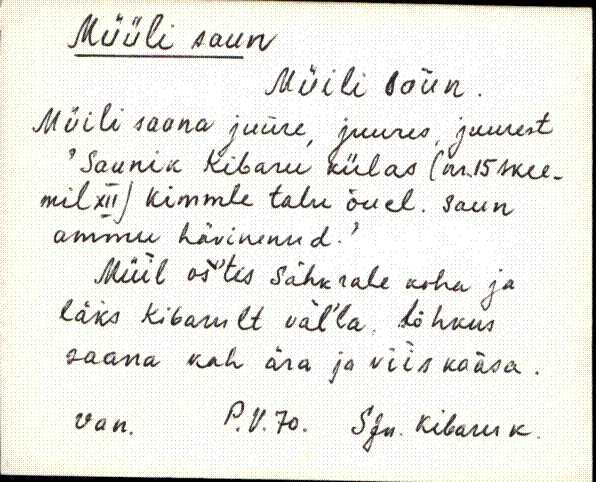 Müüli saun
Müili saun.
Müili saana juure, juures, juurest
'Saunik Kibaru külas (nr.15 skee-
mil XII) Kimmle talu õuel. Saun
ammu hävinenud.'
Müil os'tis Sähkrale koha ja
läks Kibarult väl'la, lõhkus
saana kah ära ja viis kaasa.
Van. P.V.70. Sjn. Kibaru k.